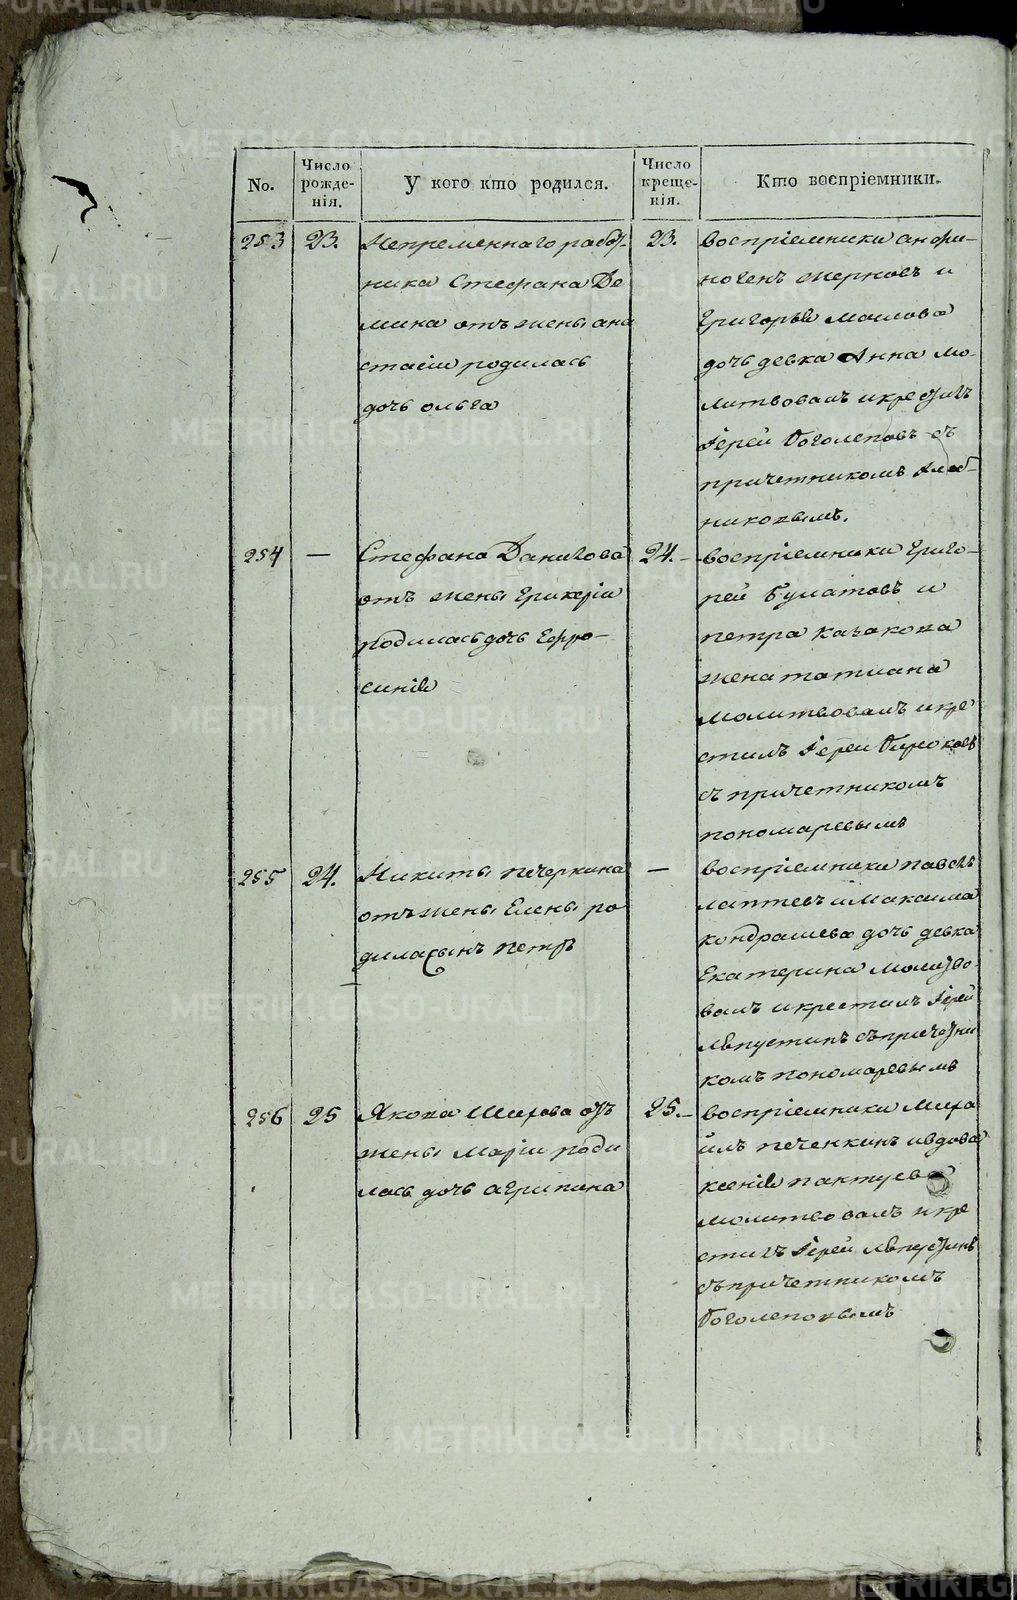 No.
Число рожде-
нія.
У кого кто родился.
Число креще-
нія.
Кто воспріемники.
253
23.
Непременнаго работ-
ника Стефана Де
мина отъ жены ана
стасіи родилась
дочь ольга
23.
воспріемники анфи-
ногенъ жерновъ и
Григорья маслова
дочь девка Анна мо-
литвовалъ и крестилъ
Іерей Боголеповъ съ
причетникомъ
никовымъ.
254
—
Стефана Данилова
отъ жены
родилась дочь Ефро-
синія
24.
воспріемники Григо-
рей Булатовъ и
петра казакова
жена татиана
молитвовалъ и кре
стилъ Іерей
съ причетникомъ
пономаревымъ
255
24.
Никиты печеркина
отъ жены Елены ро
дилса сынъ петръ
—
воспріемники павелъ
лаптевъ и Максима
кондрашева дочь девка
Екатерина молитво-
валъ и крестилъ Іерей
Августинъ съ причетни
комъ пономаревымъ
256
25
Якова Широва отъ
жены маріи роди
лась дочь агрипина
25.
воспріемники Миха
илъ печенкинъ и вдова
ксенія пактуева
молитвовалъ и кре
стилъ Іерей Августинъ
съ причетникомъ
Боголеповымъ
METRIKI.GASO-URAL.RU